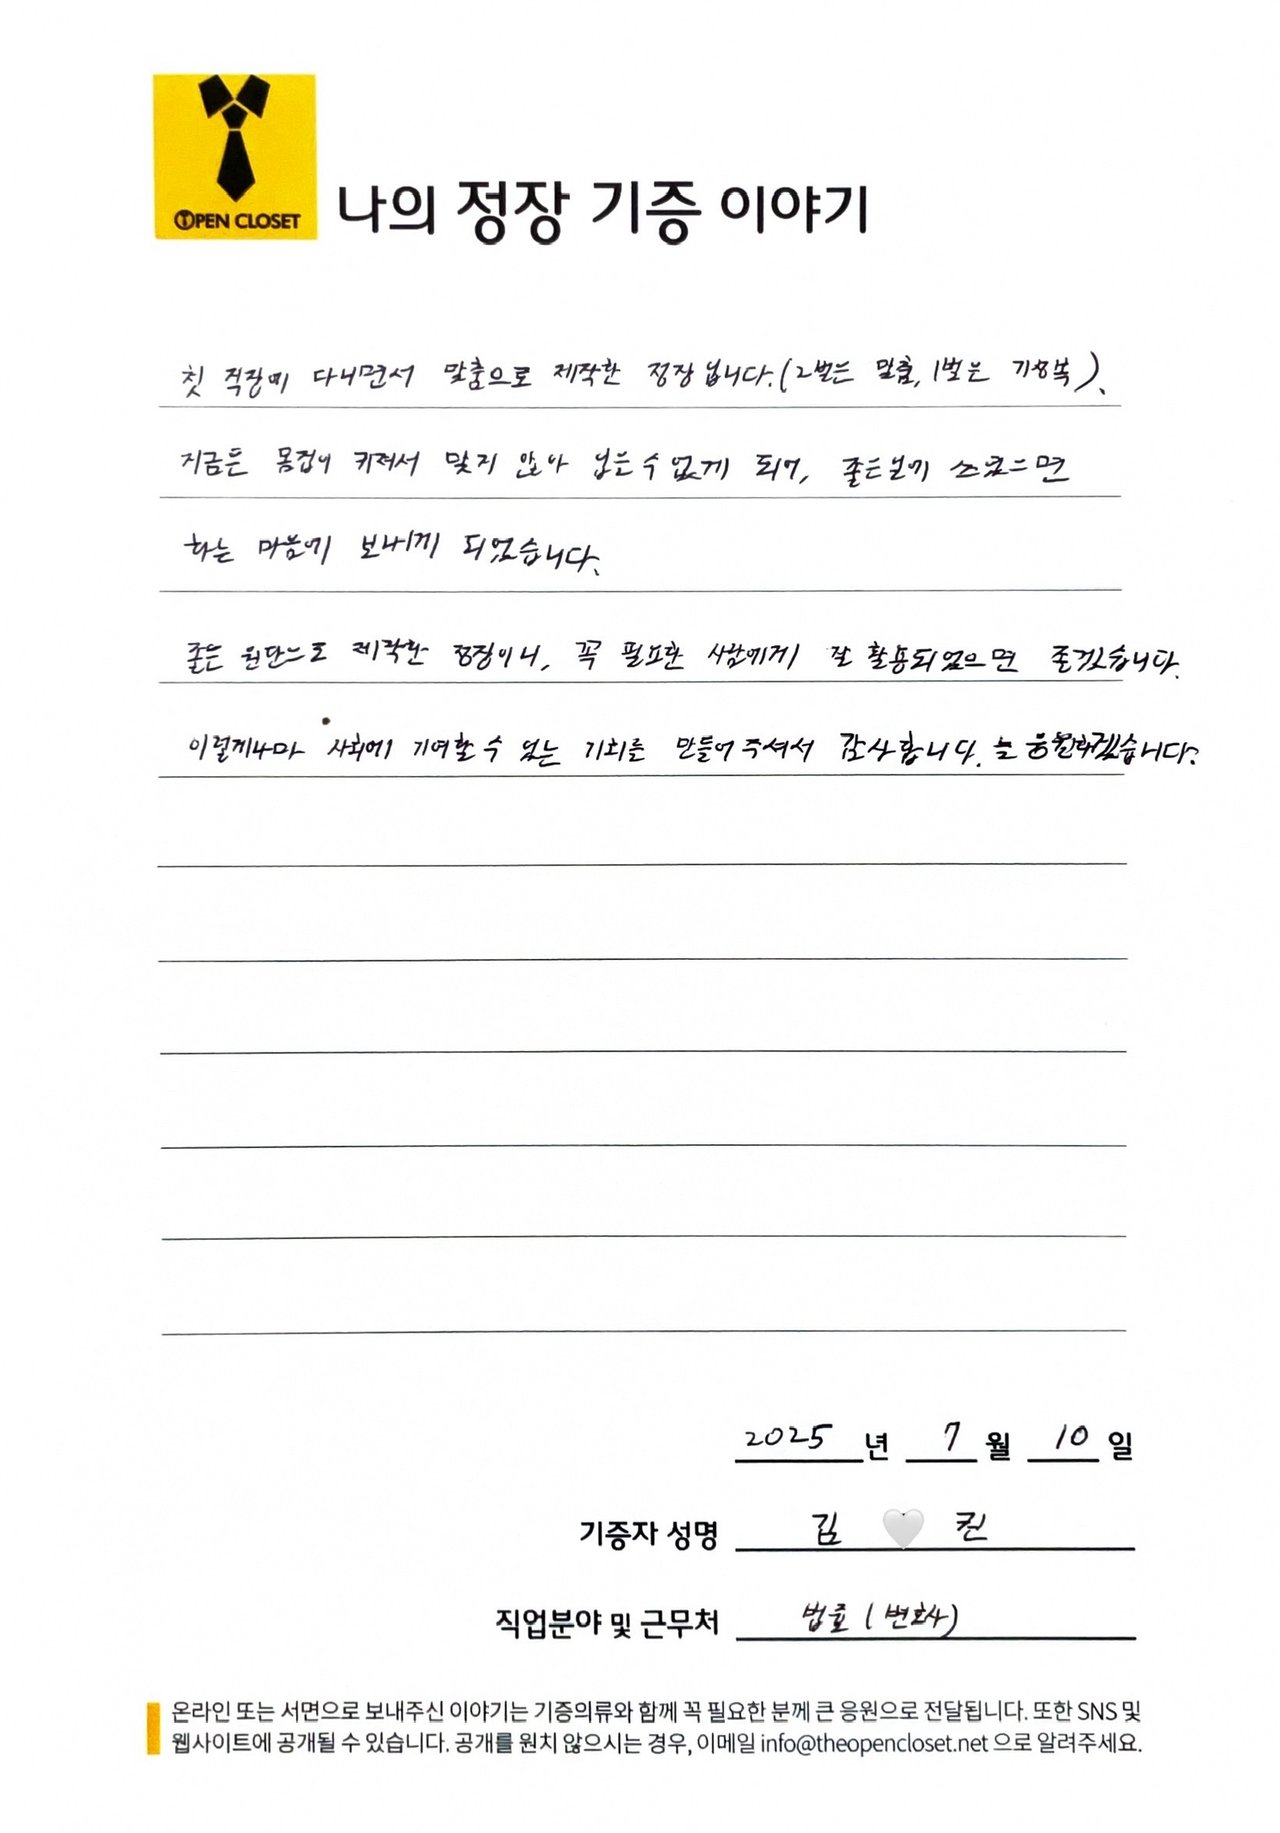 OPEN CLOSET
나의 정장 기증 이야기
첫 직장에 다니면서 맞춤으로 제작한 정장입니다. (2벌은 맞춤, 1벌은 기성복).
지금은 몸집이 커져서 맞지 않아 입을 수 없게 되어, 좋은 날에 쓰였으면
하는 마음에 보내게 되었습니다.
좋은 원단으로 제작한 정장이니, 꼭 필요한 사람에게 잘 활용되었으면 좋겠습니다.
이렇게나마 사회에 기여할 수 있는 기회를 만들어 주셔서 감사합니다. 늘 응원하겠습니다.
2025 년 7 월 10 일
기증자 성명 김 🤍 진
직업분야 및 근무처 법률 (변호사)
온라인 또는 서면으로 보내주신 이야기는 기증의류와 함께 꼭 필요한 분께 큰 응원으로 전달됩니다. 또한 SNS 및
웹사이트에 공개될 수 있습니다. 공개를 원치 않으시는 경우, 이메일 info@theopencloset.net 으로 알려주세요.